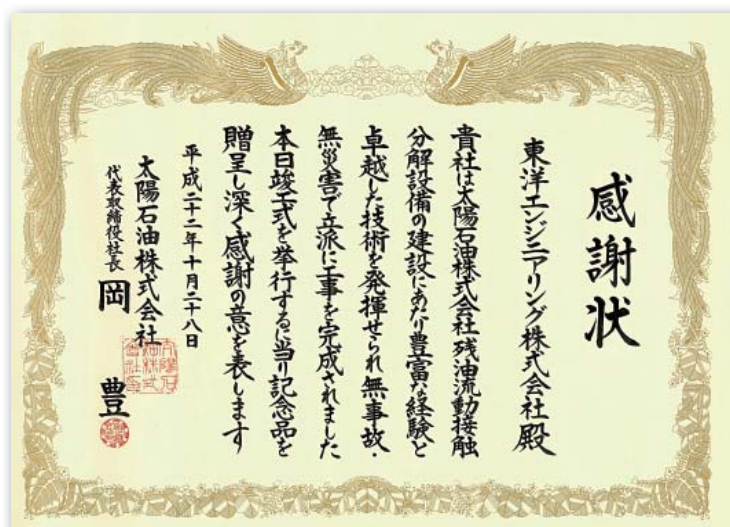 感謝状
東洋エンジニアリング株式会社殿
貴社は太陽石油株式会社残油流動接触
分解設備の建設にあたり豊富な経験と
卓越した技術を発揮せられ無事故・
無災害で立派に工事を完成されました
本日竣工式を挙行するに当り記念品を
贈呈し深く感謝の意を表します
平成二十二年十月二十八日
太陽石油株式会社
代表取締役社長 岡 豊